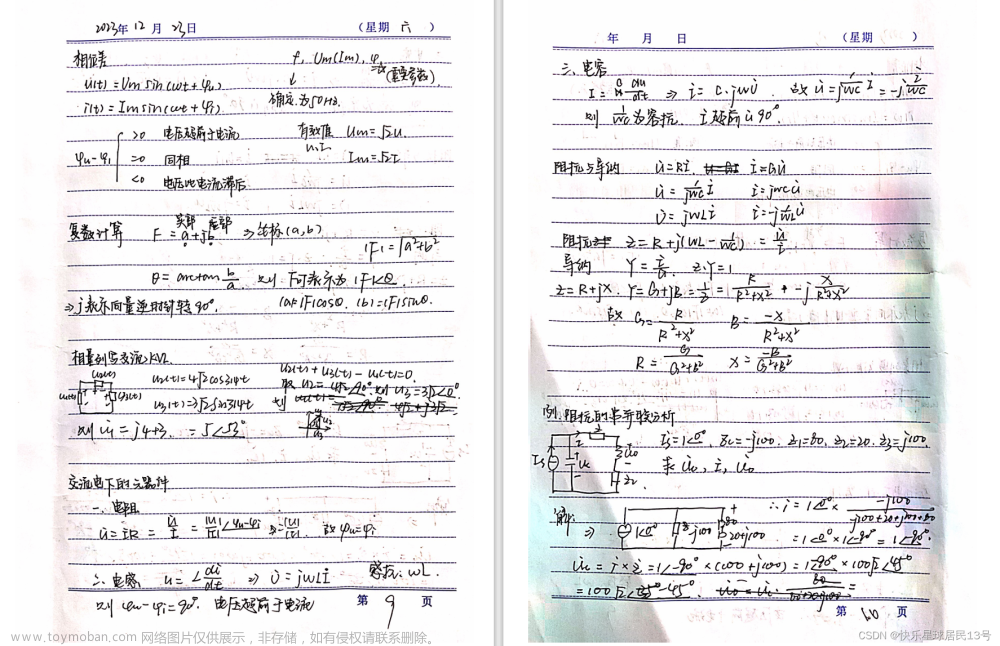 2023年 12 月 23日 (星期 六 )
相位差 f, Um(Im), φ
u(t) = Um sin(ωt + φu) ↓
i(t) = Im sin(ωt + φi) 确定为50Hz.
φu-φi
>0 电压超前于电流 有效值 Um = √2U.
=0 同相 U,I Im = √2I
<0 电压比电流滞后
复数计算 F = a + jb ⇒ 坐标(a, b)
实部 虚部
|F| = √a²+b²
θ = arctan b/a 则 F可表示为 |F|∠θ
⇒ j表示向量逆时针转90°. |a|=|F|cosθ. |b|=|F|sinθ.
相量列写交流KVL
u2(t) + u3(t) - u1(t) = 0.
u2(t) = 4√2cos314t
u3(t) = 3√2sin314t
则 u̇1 = j4+3. = 5∠53°
交流电下的元器件
一、电阻
u̇ = i̇R = u̇/i̇ = |U|/|I| ∠φu-φi 故φu=φi
二、电容 u = L di/dt ⇒ U̇ = jωLİ 容抗: ωL.
则 φu-φi = 90°. 电压超前于电流
第 9 页
年 月 日 (星期 )
三、电容
I = C du/dt ⇒ i̇ = C·jωU̇ 故 u̇ = 1/jωC İ = -j İ/ωC
则 1/ωC 为容抗. İ超前u̇ 90°.
阻抗与导纳 u̇ = Rİ. i̇ = Gu̇
u̇ = 1/jωC İ i̇ = jωCu̇
U̇ = jωLİ i̇ = -j 1/ωL u̇
阻抗 Z = R + j(ωL - 1/ωC) = u̇/i̇
导纳 Z·Y = 1
Z = R + jX. Y = G + jB = 1/Z = R/R²+X² + -j X/R²+X²
故 G = R/R²+X² B = -X/R²+X²
R = G/G²+B² X = -B/G²+B²
例. 阻抗的串并联分析
İs = 1∠0°, Zc = -j100. Z1 = 80, Z2 = 20. Z3 = j100.
求
解:
⇒
1∠0° -j100 80 20+j100
∴ i̇ = 1∠0° ×
= 1∠0° × 1∠-90° = 1∠-90°
= 1∠-90° × (100 + j100) = 1∠-90° × 100√2∠45°
= 100√2∠-45°
第 10 页
www.toymoban.com 网络图片仅供展示，非存储，如有侵权请联系删除。
CSDN @快乐星球居民13号